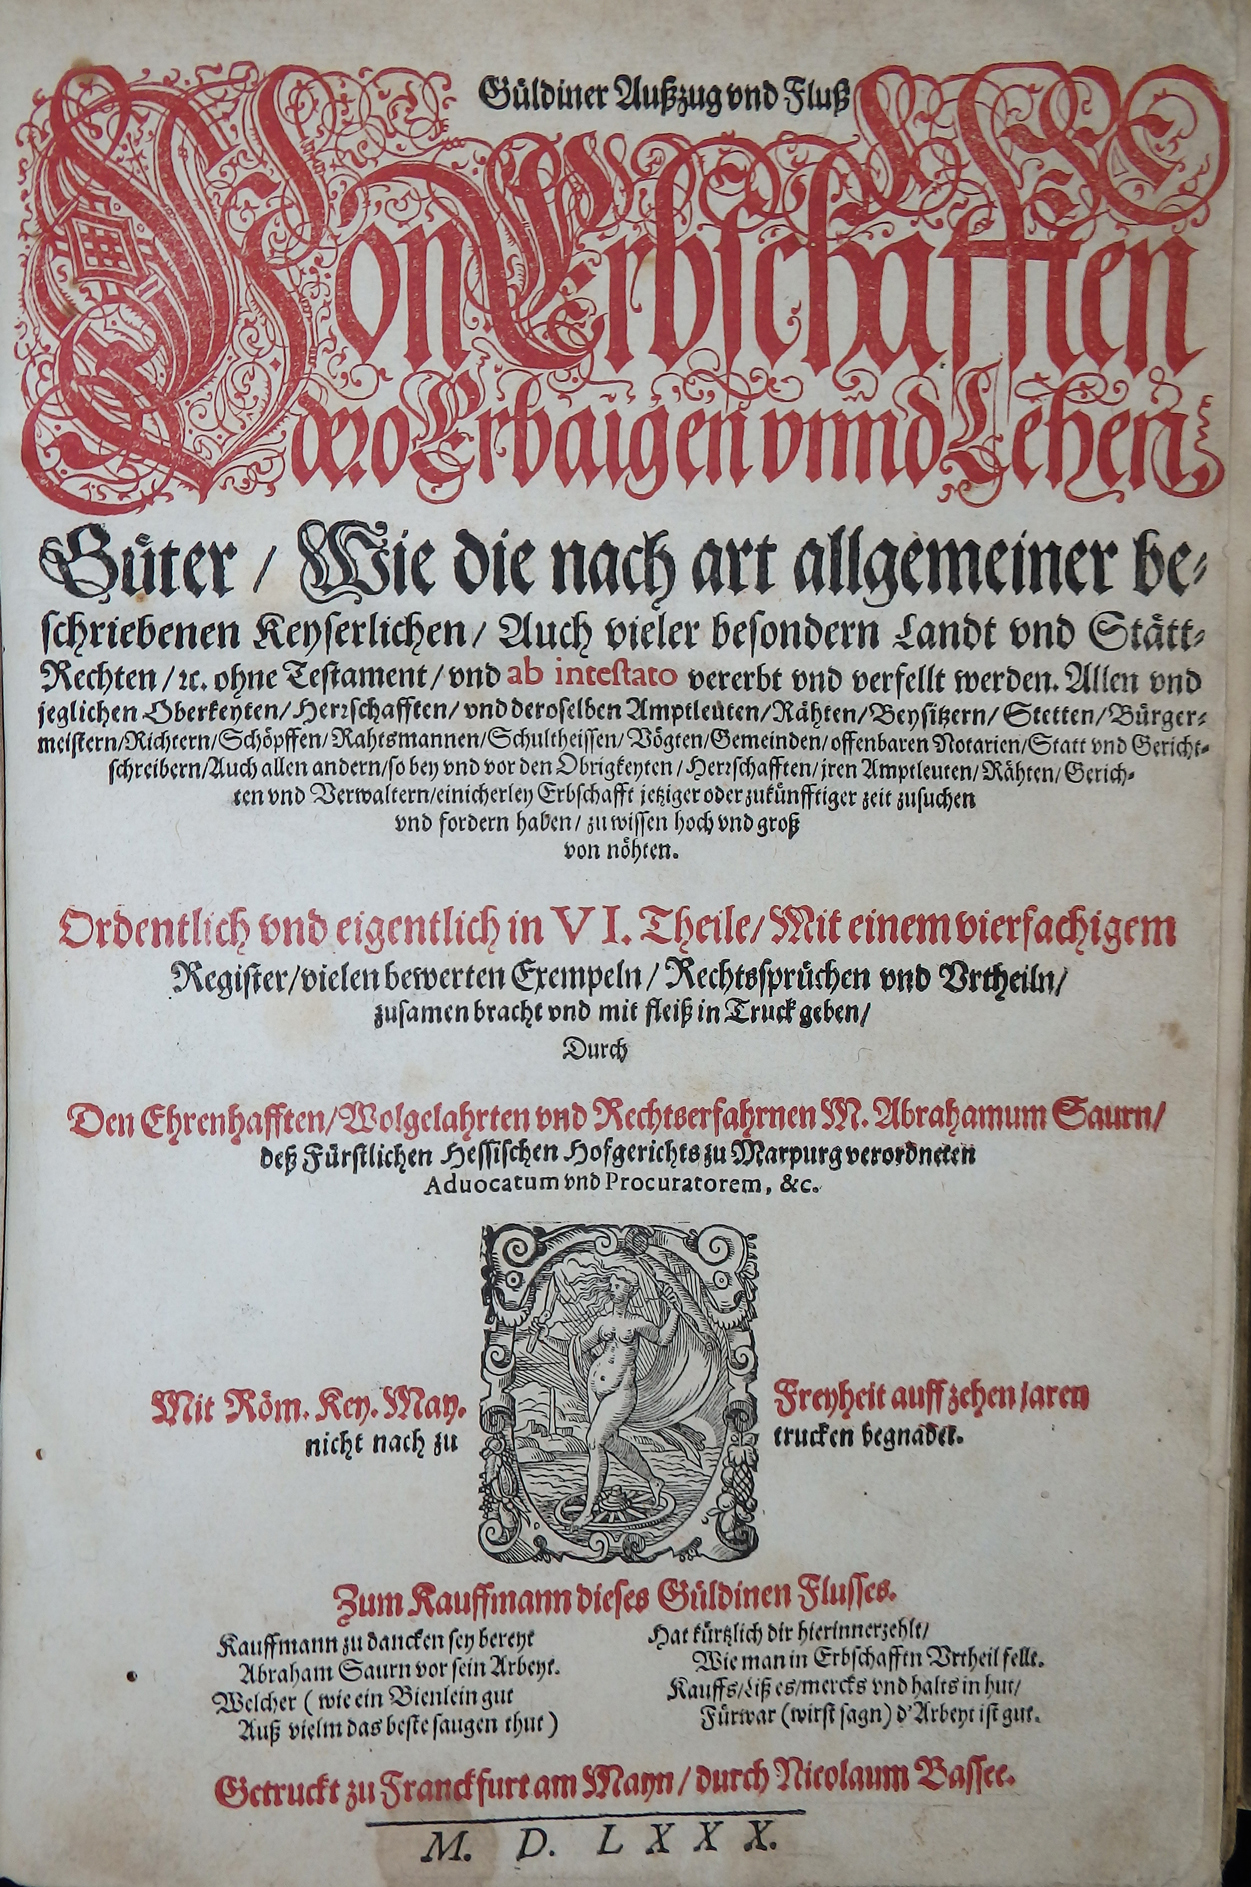 Güldiner Außzug vnd Fluß
Von Erbschafften
dero Erbaigen vnnd Lehen,
Güter / Wie die nach art allgemeiner be-
schriebenen Keyserlichen / Auch vieler besondern Landt vnd Stätt-
Rechten / ꝛc. ohne Testament / vnd ab intestato vererbt vnd verfellt werden. Allen vnd
jeglichen Oberkeyten / Herꝛschafften / vnd deroselben Amptleuten / Rähten / Beysitzern / Stetten / Bürger-
meistern / Richtern / Schöpffen / Rahtsmannen / Schultheissen / Vögten / Gemeinden / offenbaren Notarien / Statt vnd Gericht-
schreibern / Auch allen andern / so bey vnd vor den Obrigkeyten / Herꝛschafften / jren Amptleuten / Rähten / Gerich-
ten vnd Verwaltern / einicherley Erbschafft jetziger oder zukünfftiger zeit zusuchen
vnd fordern haben / zu wissen hoch vnd groß
von nöhten.
Ordentlich vnd eigentlich in VI. Theile / Mit einem vierfachigem
Register / vielen bewerten Exempeln / Rechtssprüchen vnd Vrtheiln /
zusamen bracht vnd mit fleiß in Truck geben /
Durch
Den Ehrenhafften / Wolgelahrten vnd Rechtserfahrnen M. Abrahamum Saurn /
deß Fürstlichen Hessischen Hofgerichts zu Marpurg verordneten
Aduocatum vnd Procuratorem, &c.
Mit Röm. Key. May. Freyheit auff zehen jaren
nicht nach zu trucken begnadet.
Zum Kauffmann dieses Güldinen Flusses.
Kauffmann zu dancken sey bereyt
Abraham Saurn vor sein Arbeyt.
Welcher ( wie ein Bienlein gut
Auß vielm das beste saugen thut )
Hat kürtzlich dir hierinnerzehlt /
Wie man in Erbschafftn Vrtheil fellt.
Kauffs / Liß es / mercks vnd halts in hut /
Fürwar ( wirst sagn ) d'Arbeyt ist gut.
Getruckt zu Franckfurt am Mayn / durch Nicolaum Bassee.
M. D. LXXX.